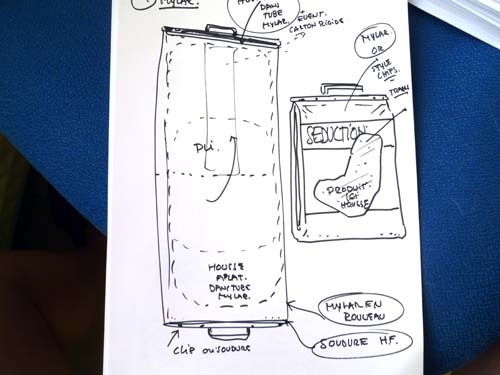 ① MYLAR.
DANS
TUBE
MYLAR.
+ EVENT.
CARTON RIGIDE
MYLAR
OR
STYLE
CHIPS.
TRAN
SEDUCTION
Pli.
PRODUIT
ET
HOUSSE
HOUSSE
A PLAT.
DANS TUBE
MYLAR.
MYLAR EN
ROULEAU
SOUDURE H.F.
Clip ou SOUDURE